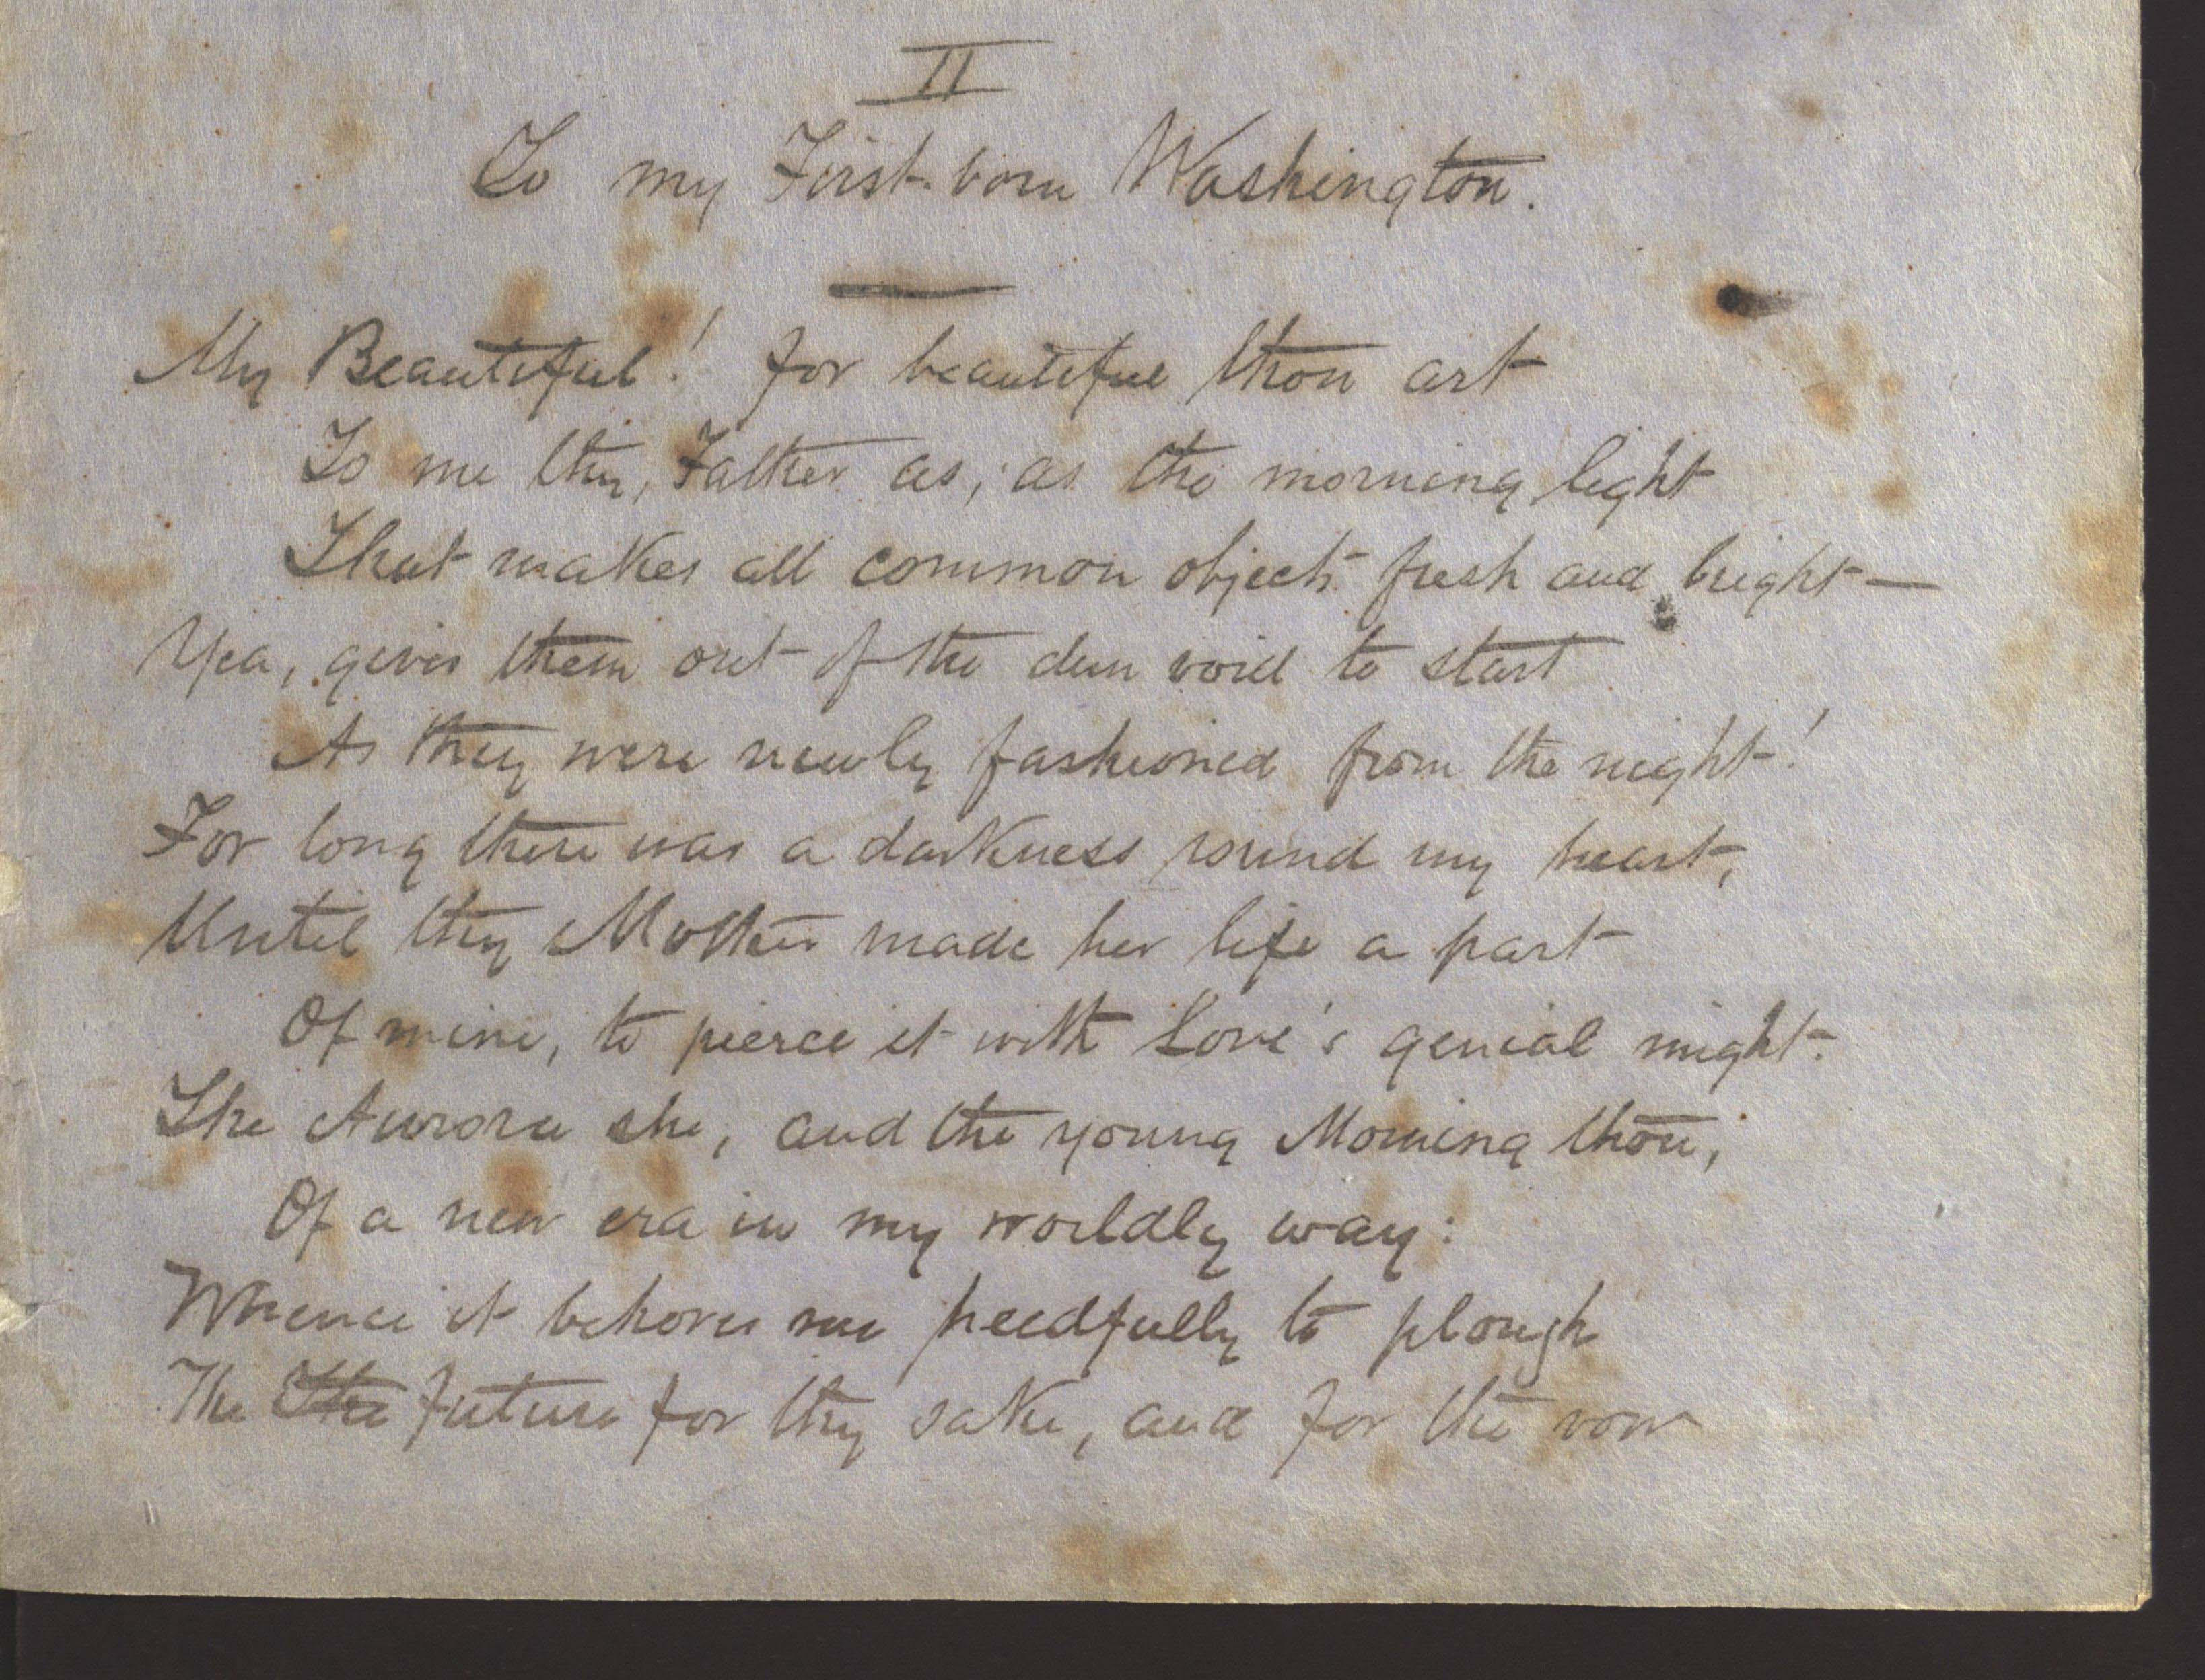 II
To my First-born Washington.
My Beautiful! for beautiful thou art
To me thy, Father as, as the morning light
That makes all common objects fresh and bright—
Yea, gives them out of the dun void to start
As they were newly fashioned from the night!
For long there was a darkness round my heart,
Until thy Mother made her life a part
Of mine, to pierce it with Love's genial might.
The Aurora she, and the young Morning thou,
Of a new era in my worldly way:
Whence it behoves me heedfully to plough
The the future for thy sake, and for the vow